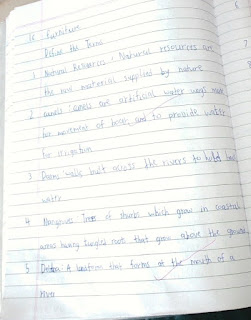 furniture
Define the Terms
1 Natural Resources - Natural resources are
the raw material supplied by nature
2 canals: canals are artificial water ways made
for movement of boats and to provide water
for irrigation
3 Dams: walls built across the rivers to hold back
water
4 Mangroves Trees of shrubs which grow in coastal
areas having tangled roots that grow above the ground
5 A landform that forms at the mouth of a
River